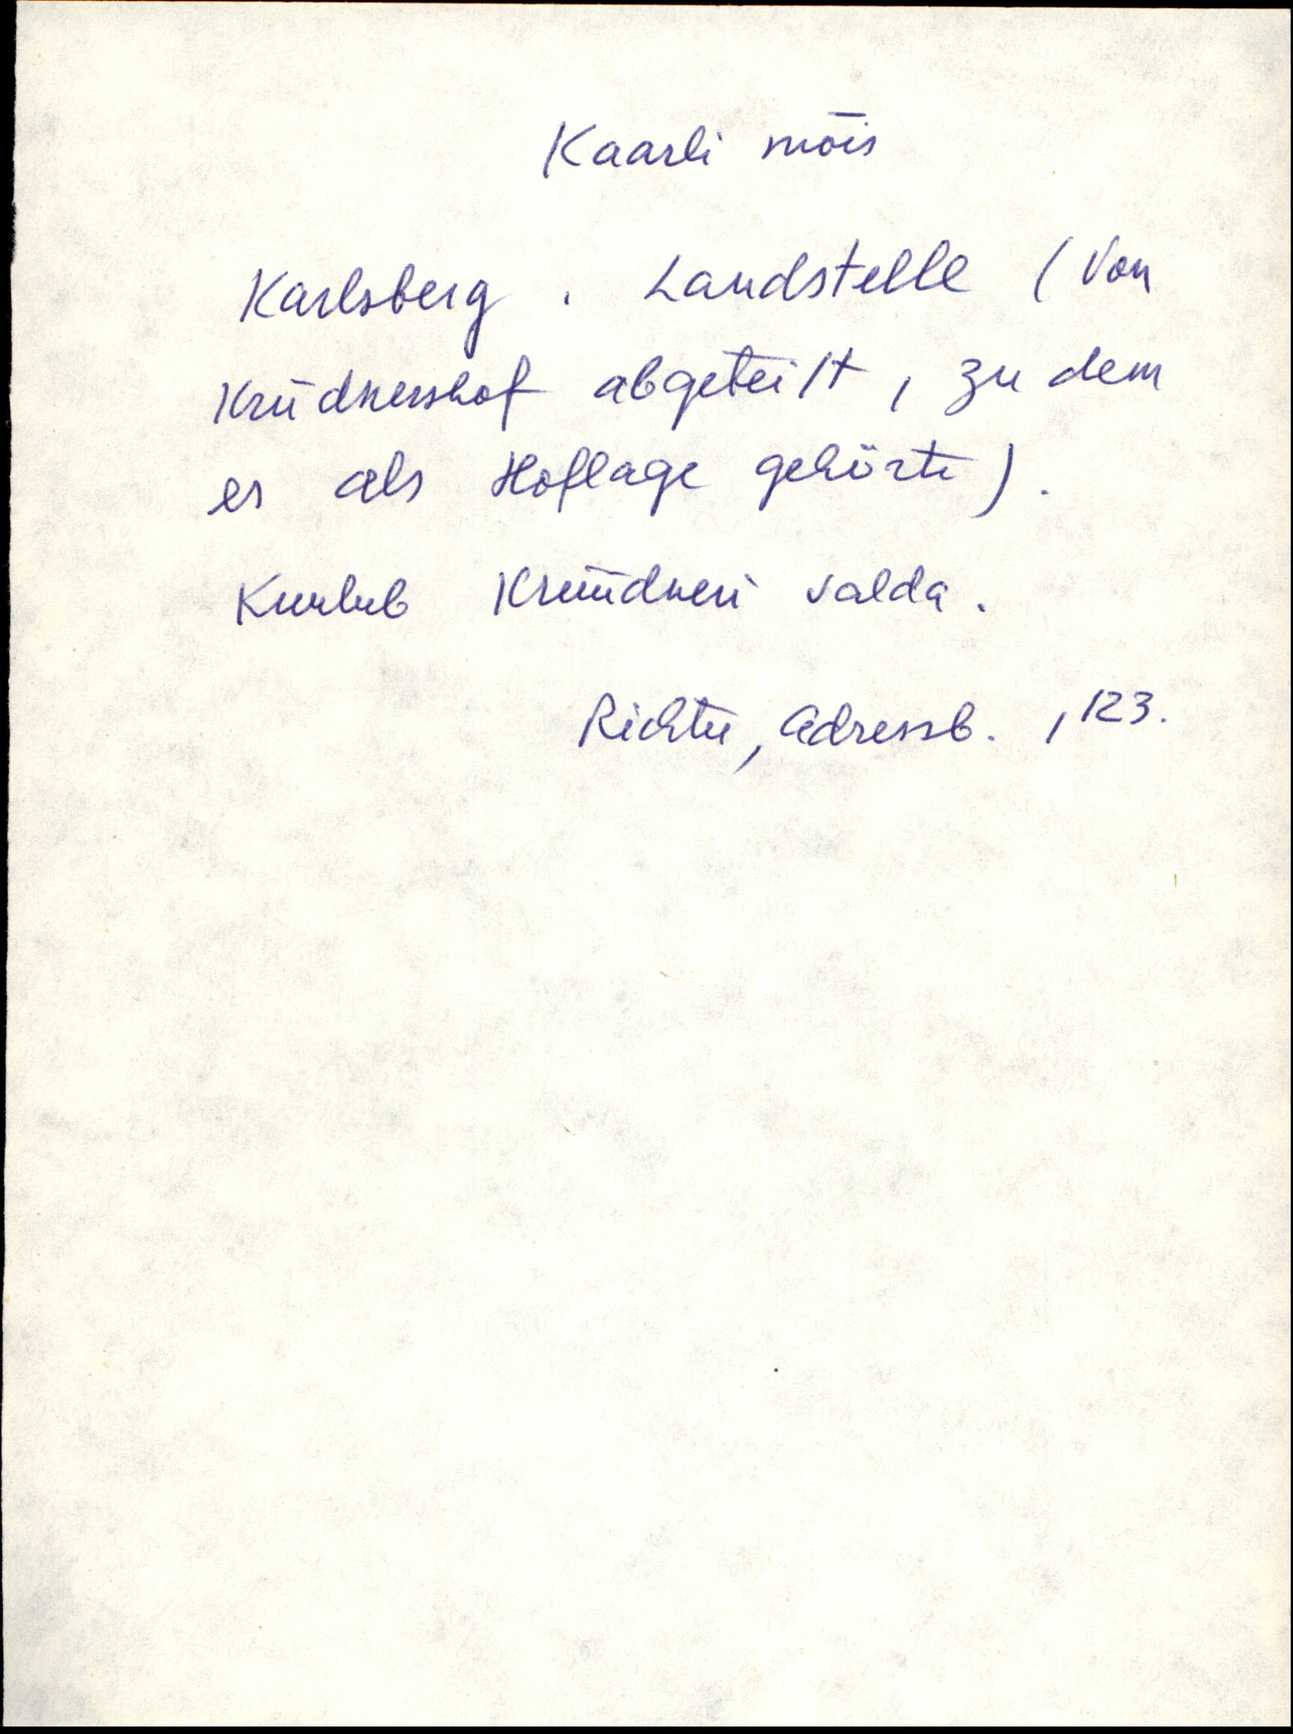 Kaarli mõis
Karlsberg. Landstelle (Von
Krüdnershof abgeteilt, zu dem
es als Hoflage gehörte).
Kuulub Krüüdneri valda.
Richter, Adressb. , 123.